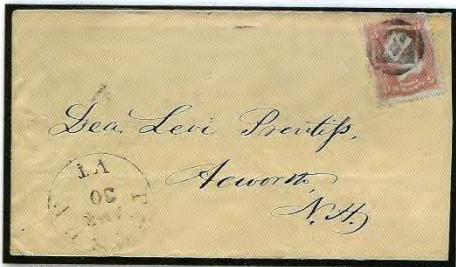 Dea. Levi Prentiss,
Acworth,
N.H.
VT
30